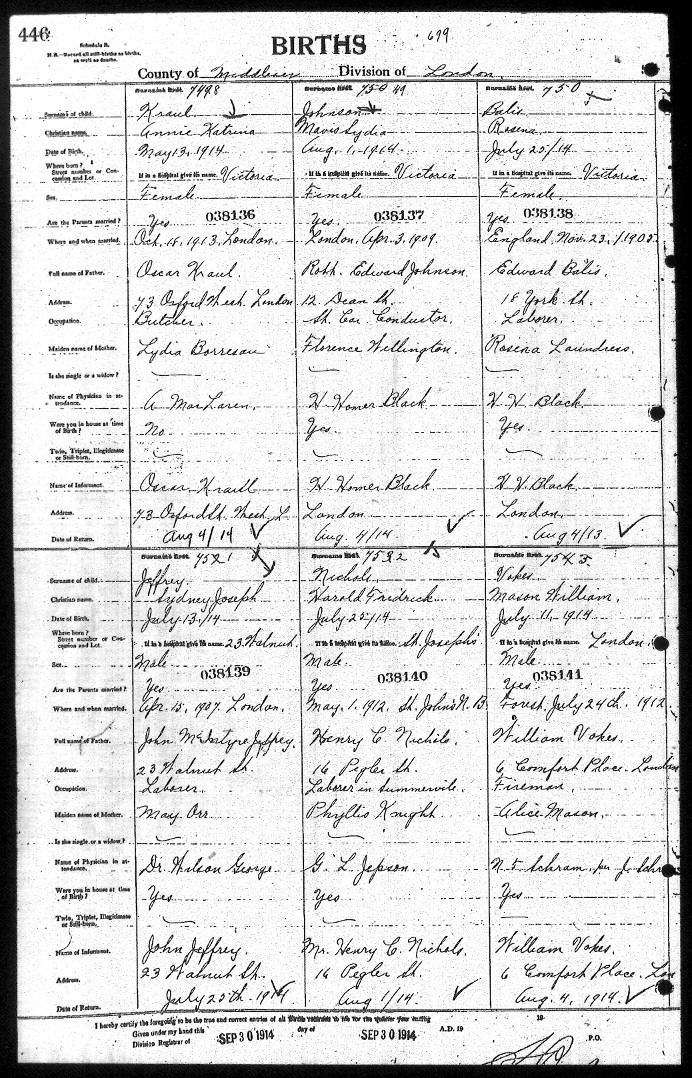 446
699
Schedule B.
N.B.—Record all still-births as births, as well as deaths.
BIRTHS
County of Middlesex Division of London
Surname first. 7498 Surname first. 750 Surname first. 750
Surname of child. Kraul Johnson Balis
Christian name. Annie Katrina Mavis Lydia Rosena
Date of Birth. May 13, 1914 Aug. 1, 1914 July 25/14
Where born? Street number or Concession and Lot. If in a hospital give its name. Victoria If in a hospital give its name. Victoria If in a hospital give its name. Victoria
Sex. Female Female Female
038136 038137 038138
Are the Parents married? Yes Yes. Yes
Where and when married. Oct. 18, 1913, London. London, Apr. 3, 1909. England, Nov. 23, 1905.
Full name of Father. Oscar Kraul. Robt. Edward Johnson Edward Balis.
Address. 73 Oxford West. London 12 Dean St. 18 York St.
Occupation. Butcher. St. Car Conductor. Laborer.
Maiden name of Mother. Lydia Borresau Florence Wellington. Rosena Laundress.
Is she single or a widow?
Name of Physician in attendance. A MacLaren. H Homer Black H H. Black
Were you in house at time of Birth? No Yes. Yes.
Twin, Triplet, Illegitimate or Still-born.
Name of Informant. Oscar Kraul H Homer Black H H. Black
Address. 73 Oxford St. West. L London London.
Date of Return. Aug 4/14 Aug. 4/14 Aug 4/13
Surname first. 7521 Surname first. 7532 Surname first. 7543
Surname of child. Jeffrey. Nichols Vokes
Christian name. Sydney Joseph Harold Fredrick Mason William.
Date of Birth. July 13/14 July 25/14 July 11, 1914
Where born? Street number or Concession and Lot. If in a hospital give its name. 23 Walnut If in a hospital give its name. St. Joseph's If in a hospital give its name. London
Sex. Male Male. Male
038139 038140 038141
Are the Parents married? Yes Yes Yes
Where and when married. Apr. 15, 1907. London. May. 1. 1912. St. John's N. B. Forest, July 24th. 1912.
Full name of Father. John McIntyre Jeffrey. Henry C. Nichols. William Vokes.
Address. 23 Walnut St. 16 Pegler St. 6 Comfort Place. London
Occupation. Laborer. Laborer in Summerville. Fireman.
Maiden name of Mother. May Orr Phyllis Knight Alice Mason.
Is she single or a widow?
Name of Physician in attendance. Dr. Wilson George G. L. Jepson. Schram, per J. Schram
Were you in house at time of Birth? Yes Yes Yes
Twin, Triplet, Illegitimate or Still-born.
Name of Informant. John Jeffrey. Mr. Henry C. Nichols. William Vokes.
Address. 23 Walnut St. 16 Pegler St. 6 Comfort Place. Lon
Date of Return. July 25th. 1914 Aug 1/14. Aug. 4, 1914.
I hereby certify the foregoing to be the true and correct entries of all Births recorded to me for the quarter year ending 19
Given under my hand this SEP 30 1914 day of SEP 30 1914 A.D. 19
Division Registrar of P.O.